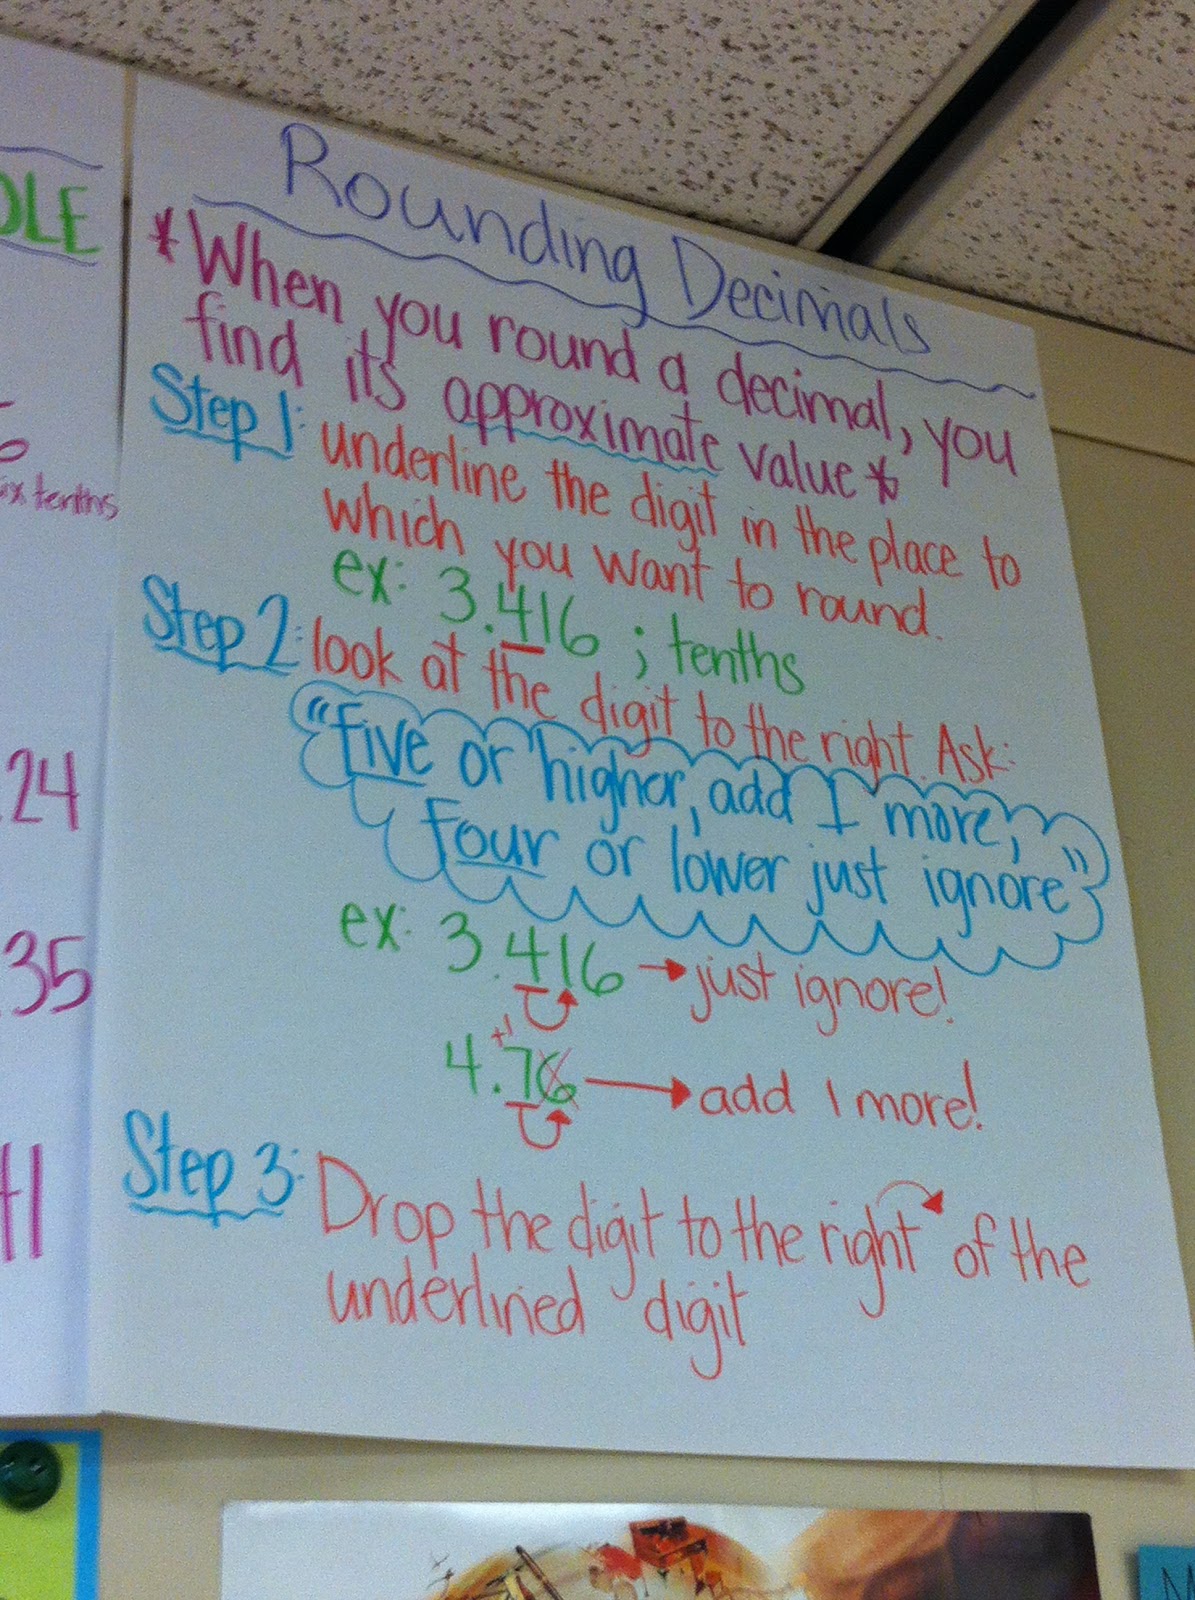 Rounding Decimals
*When you round a decimal, you
find its approximate value*
Step 1: underline the digit in the place to
which you want to round.
ex: 3.416 ; tenths
Step 2: look at the digit to the right. Ask:
"Five or higher, add 1 more,
Four or lower just ignore"
ex: 3.416 → just ignore!
+1
4.76 → add 1 more!
Step 3: Drop the digit to the right of the
underlined digit
DLE
ix tenths
.24
.35